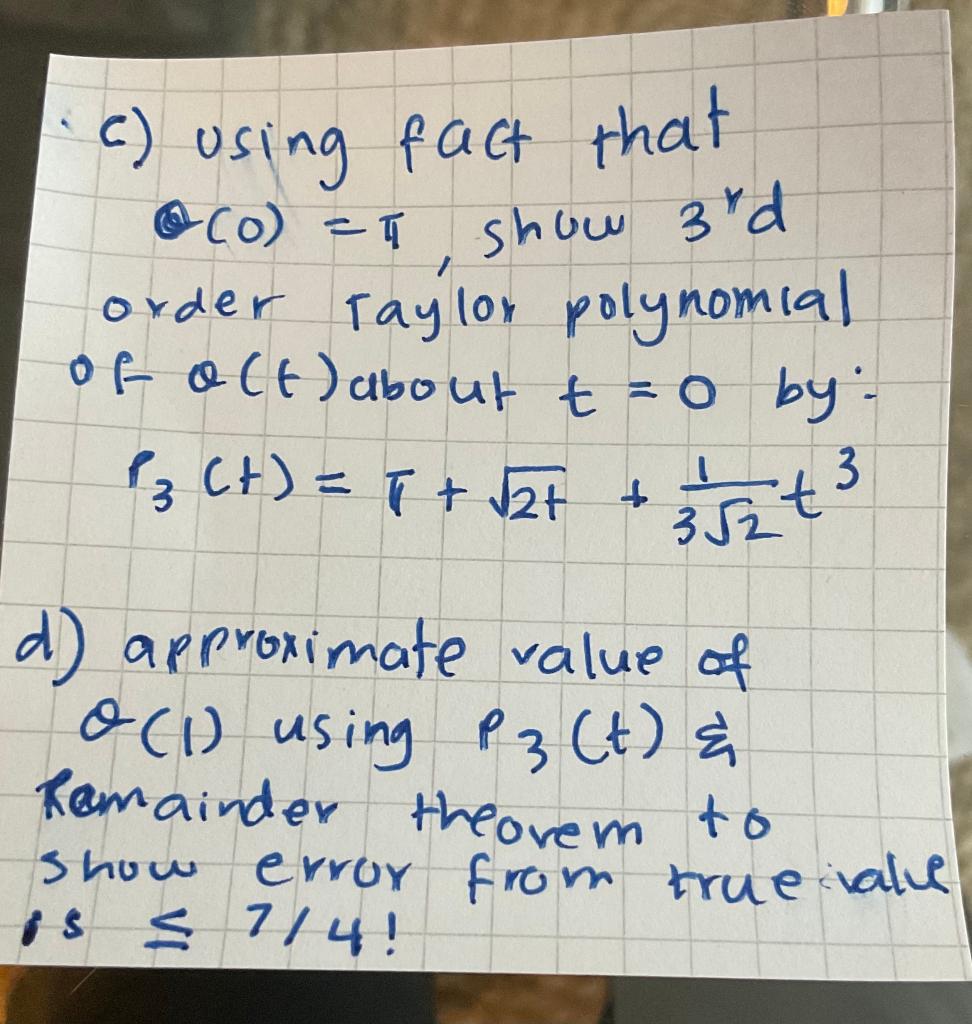 c) using fact that
θ(0) = π, show 3rd
order Taylor polynomial
of θ(t) about t = 0 by:
P₃(t) = π + √2t + 1/(3√2) t³
d) approximate value of
θ(1) using P₃(t) &
Remainder theorem to
show error from true value
is ≤ 7/4!